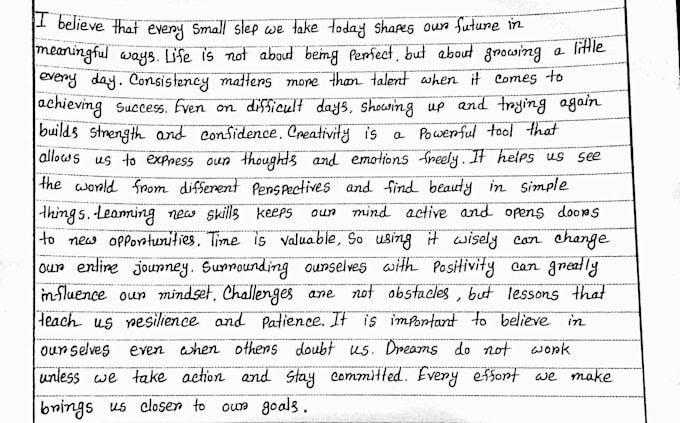 I believe that every small step we take today shapes our future in
meaningful ways. Life is not about being perfect, but about growing a little
every day. Consistency matters more than talent when it comes to
achieving success. Even on difficult days, showing up and trying again
builds strength and confidence. Creativity is a powerful tool that
allows us to express our thoughts and emotions freely. It helps us see
the world from different perspectives and find beauty in simple
things. Learning new skills keeps our mind active and opens doors
to new opportunities. Time is valuable, so using it wisely can change
our entire journey. Surrounding ourselves with positivity can greatly
influence our mindset. Challenges are not obstacles, but lessons that
teach us resilience and patience. It is important to believe in
ourselves even when others doubt us. Dreams do not work
unless we take action and stay committed. Every effort we make
brings us closer to our goals.